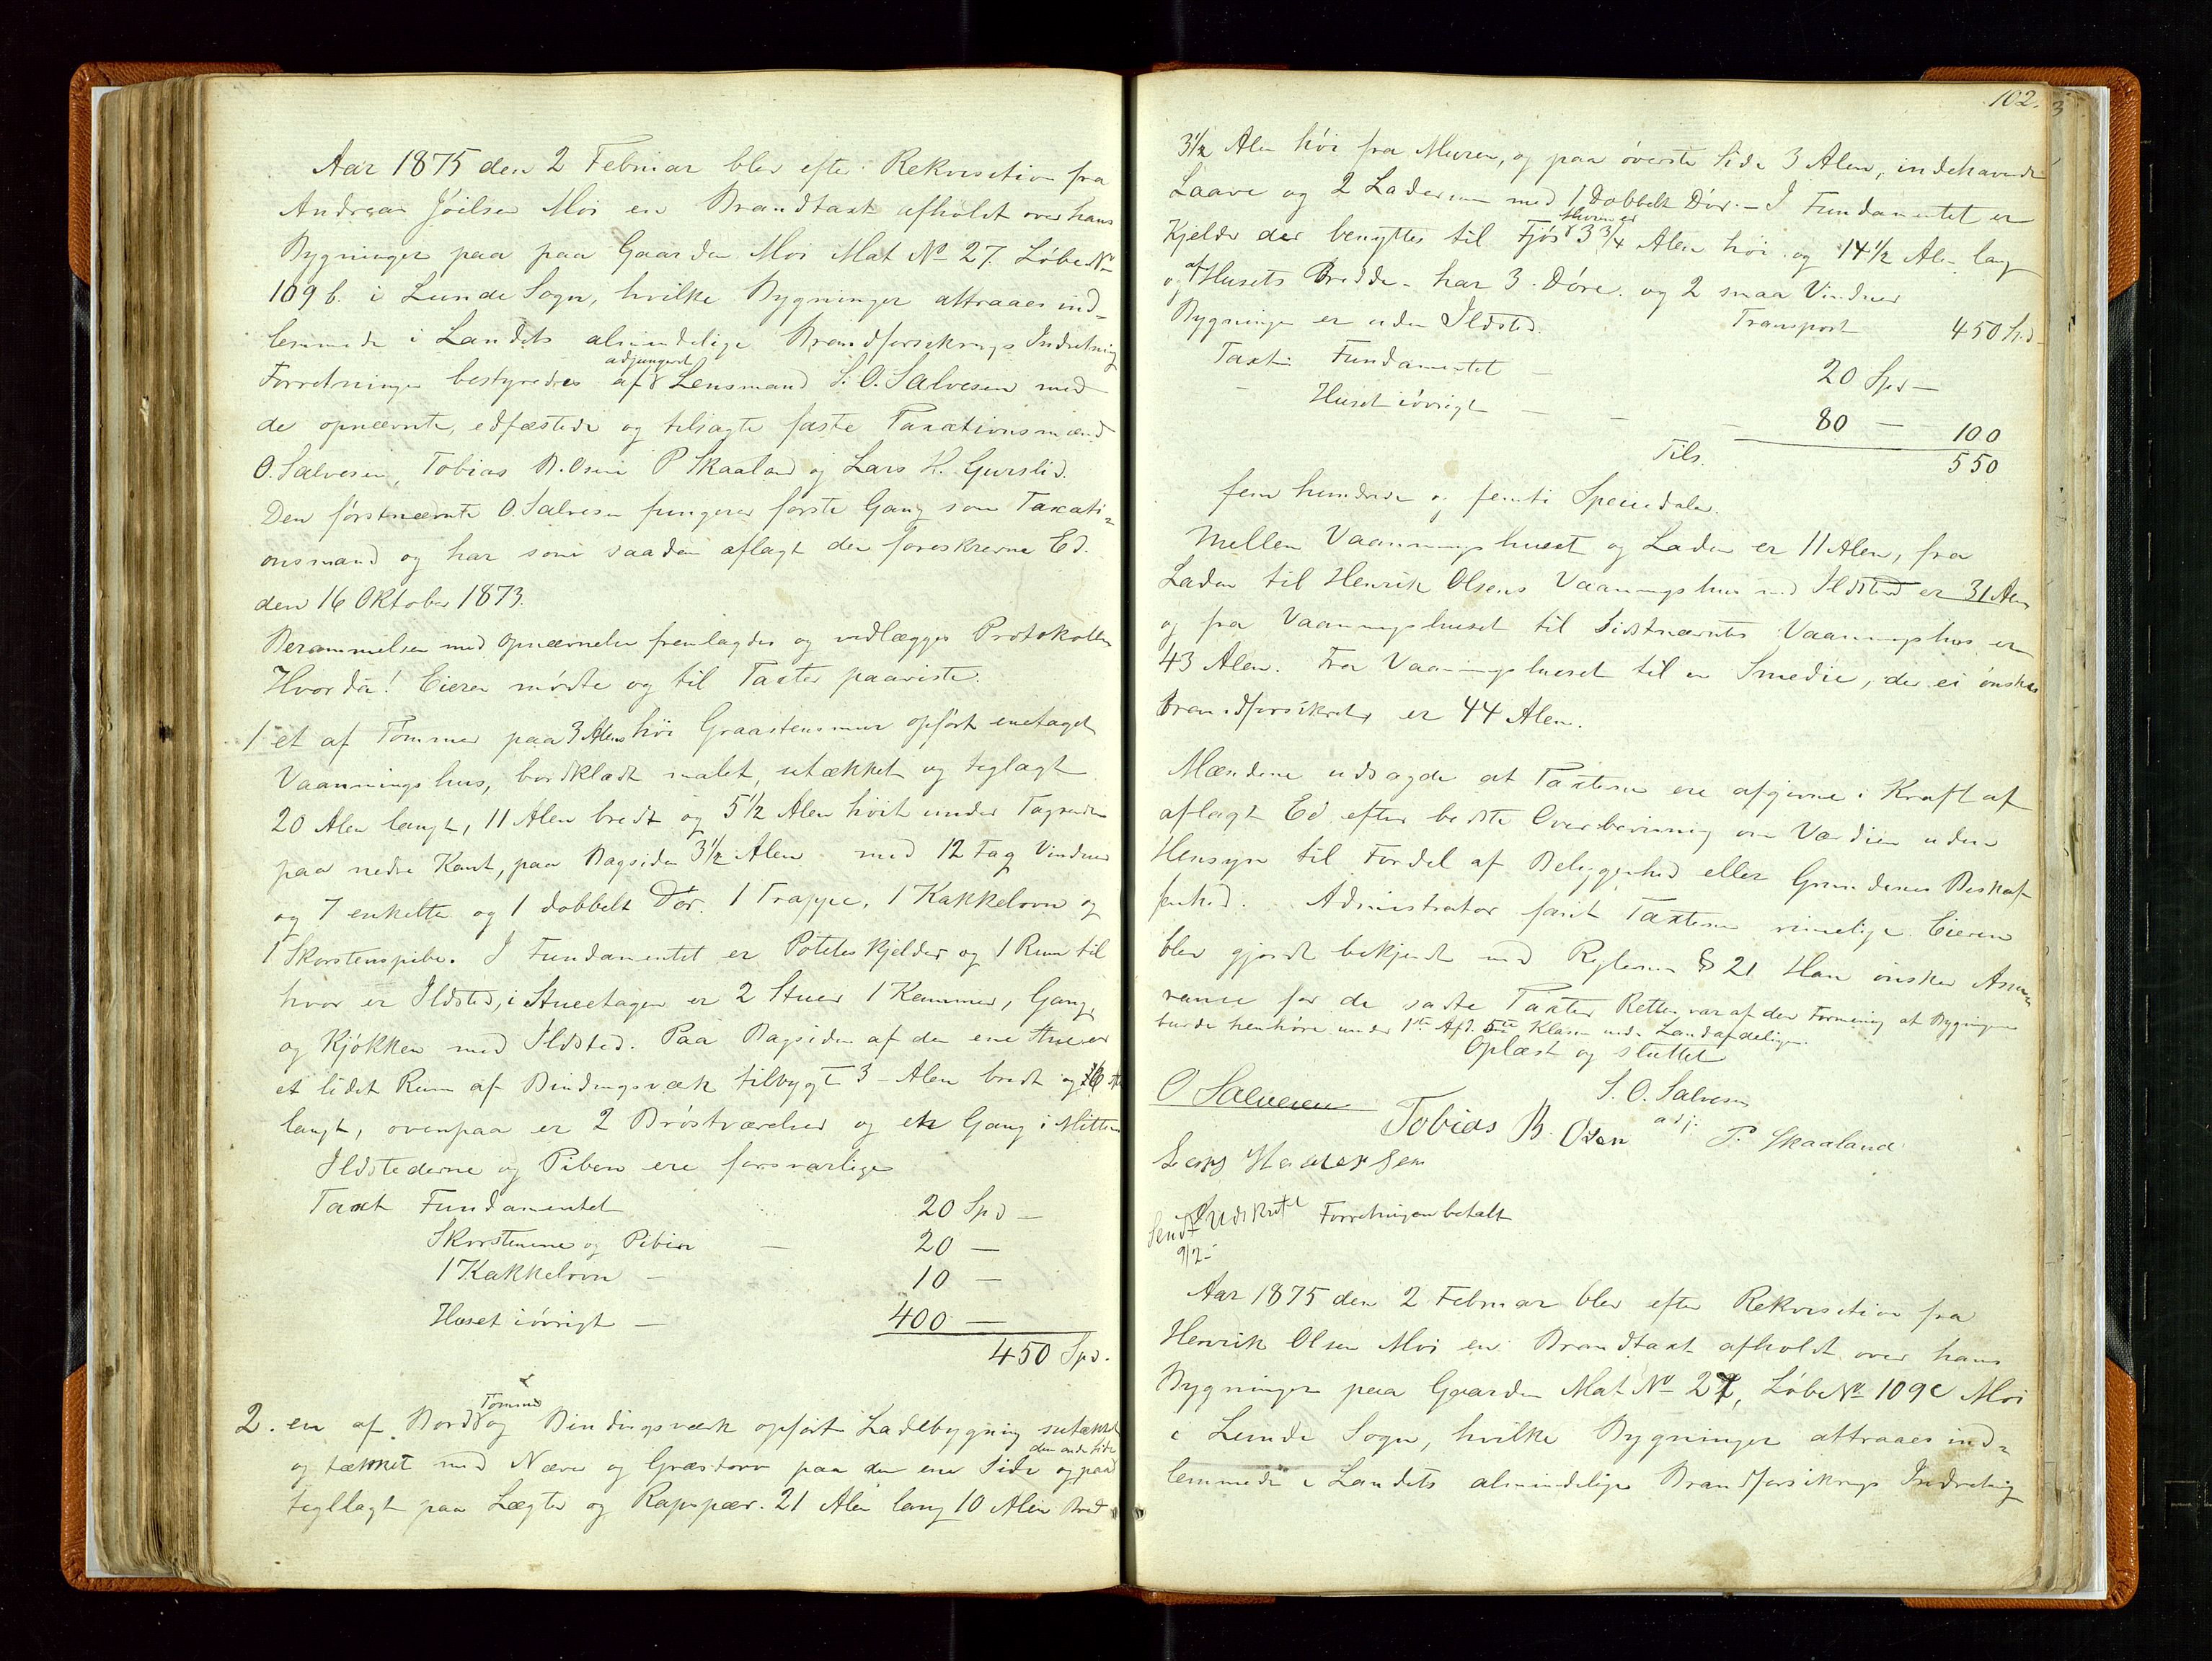 Aar 1875 den 2 Februar blev efter Rekvisition fra
Andreas Jöilsen Moi en Brandtaxt afholdt over hans
Bygninger paa paa Gaarden Moi Mat No 27. Löbe No
109 b. i Lunde Sogn, hvilke Bygninger attraaes ind-
lemmede i Landets almindelige Brandforsikrings Indretning
Forretningen bestyredes af adjungeret Lensmand S. O. Salvesen med
de opnævnte, edfæstede og tilsagte faste Taxationsmænd
O. Salvesen, Tobias B. Osen P Skaaland og Lars H. Gurslid.
Den förstnævnte O. Salvesen fungerer förste Gang som Taxati-
onsmand og har som saadan aflagt den foreskrevne Ed.
den 16 Oktober 1873.
Berammelsen med Opnævnelse fremlagdes og vedlægges Protokollen
Hvorda! Eieren mödte og til Taxter paaviste.
1 et af Tömmer paa 3 Alens höi Graastensmur opfört enetages
Vaaningshus, bordklædt malet, sutækket og teglagt
20 Alen langt, 11 Alen bredt og 5 1/2 Alen höit under Tagrenden
paa nedre Kant, paa Bagsiden 3 1/2 Alen med 12 Fag Vinduer
og 7 enkelte og 1 dobbelt Dör. 1 Trappe, 1 Kakkelovn og
1 Skorstenspibe. I Fundamentet er Poteteskjelder og 1 Rum til
hvor er Ildsted, i Stueetagen er 2 Stuer 1 Kammer, Gang
og Kjökken med Ildsted. Paa Bagsiden af den ene Stue er
et lidet Rum af Bindingsværk tilbygt 3 Alen bredt og
langt, ovenpaa er 2 Bröstværelser og en Gang i Mitten
Ildstederne og Piben ere forsvarlige
Taxt Fundamentet 20 Spd -
Skorstenene og Piben - 20 -
1 Kakkelovn - 10 -
Huset iövrigt - 400 -
450 Spd.
2. en af Bord Tömmer & og Bindingsværk opfört Ladebygning sutækket
og tækket med Næver og Græstorv paa den ene Side og paa den anden Side
tegllagt paa Lægter og Rapspær. 21 Alen lang 10 Alen Bred
102.
3 1/2 Alen höi fra Muren, og paa överste Side 3 Alen, indehavende
Laave og 2 Laderum med 1 Dobbelt Dör. - I Fundamentet er
Kjelder der benyttes til Fjös Muren er 3 3/4 Alen höi og 14 1/2 Alen lang
og af Husets Bredde - har 3 Döre. og 2 smaa Vinduer
Bygningen er uden Ildsted. Transport 450 Spd
Taxt: Fundamentet - 20 Spd -
- Huset iövrigt - - - 80 - 100
Tils. 550
fem hundrede og femti Speciedaler.
Mellem Vaaningshuset og Laden er 11 Alen, fra
Laden til Henrik Olsens Vaaningshus med Ildsted er 31 Alen
og fra Vaaningshuset til Sidstnævntes Vaaningshus er
43 Alen. Fra Vaaningshuset til en Smedie, der ei önskes
brandforsikret, er 44 Alen.
Mændene udsagde at Taxterne ere afgivne i Kraft af
aflagt Ed efter bedste Overbevisning om Værdien uden
Hensyn til Fordel af Beliggenhed eller Grundenes Beskaf-
fenhed. Administrator fandt Taxterne rimelige. Eieren
blev gjordt bekjendt med Reglerne § 21 Han önsker Assu-
rance for de satte Taxter Retten var af den Formening at Bygningerne
burde henhöre under 1ste Afd. 5te Klasse under Landafdelingen.
Oplæst og sluttet
O Salvesen Tobias B. Osen S. O. Salvesen adj. P. Skaaland
Lars Haaversen
Sendt Udskrift Forretningen betalt
9/2 -
Aar 1875 den 2 Februar blev efter Rekvisition fra
Henrik Olsen Moi en Brandtaxt afholdt over hans
Bygninger paa Gaarden Mat No 27, Löbe No 109c Moi
i Lunde Sogn, hvilke Bygninger attraaes ind-
lemmede i Landets almindelige Brandforsikrings Indretning